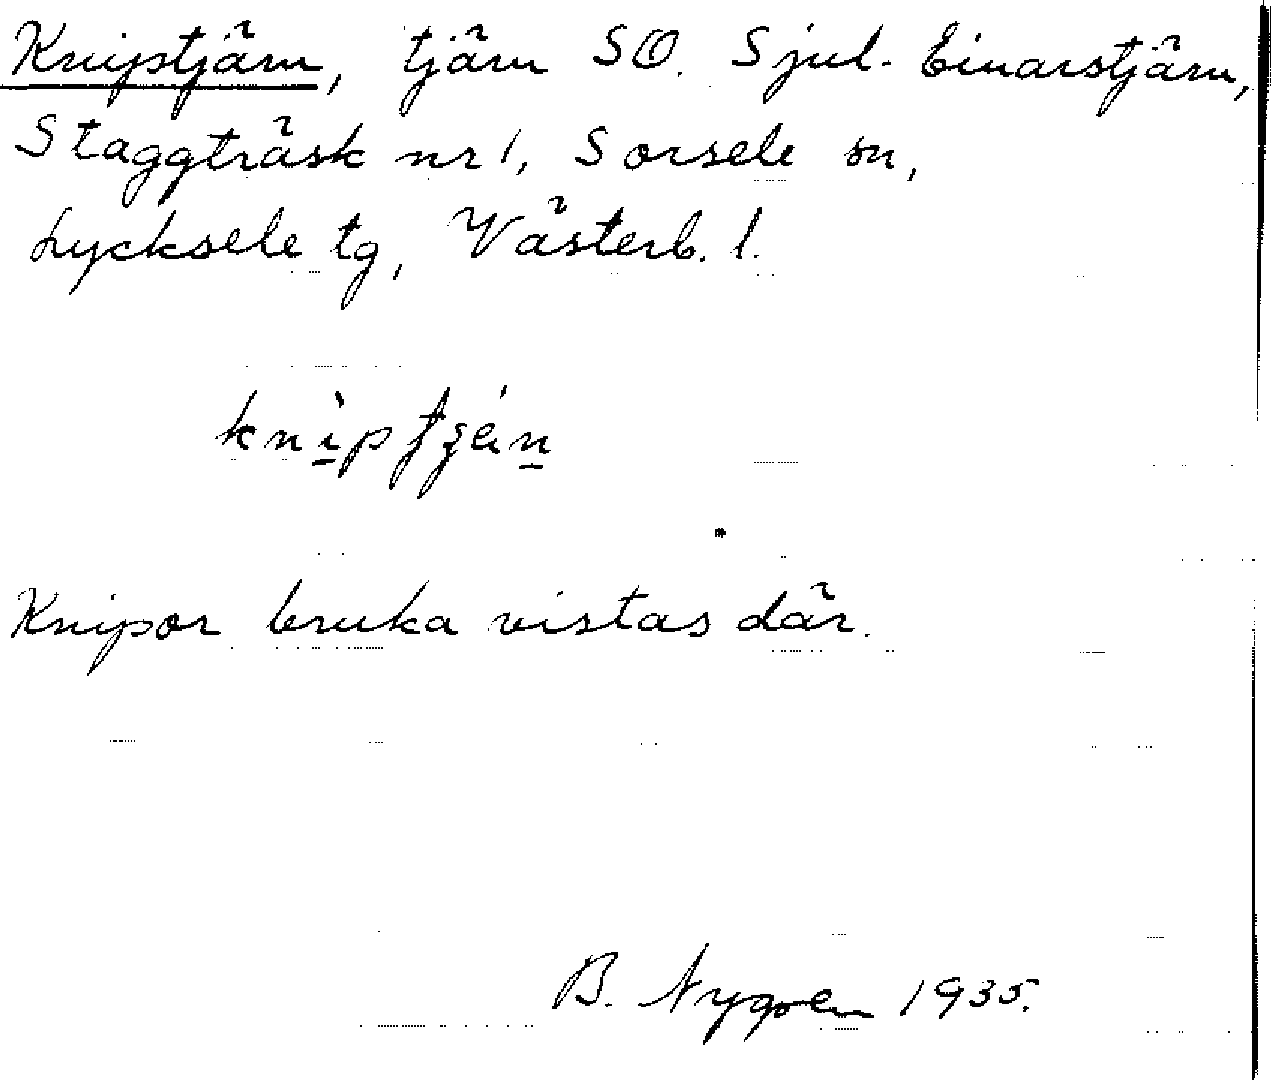 Kniptjärn, tjärn SO. Sjul-Einarstjärn,
Staggträsk nr 1, Sorsele sn,
Lycksele tg, Västerb. l.
Knipor bruka vistas där.
B. Nygren 1935.